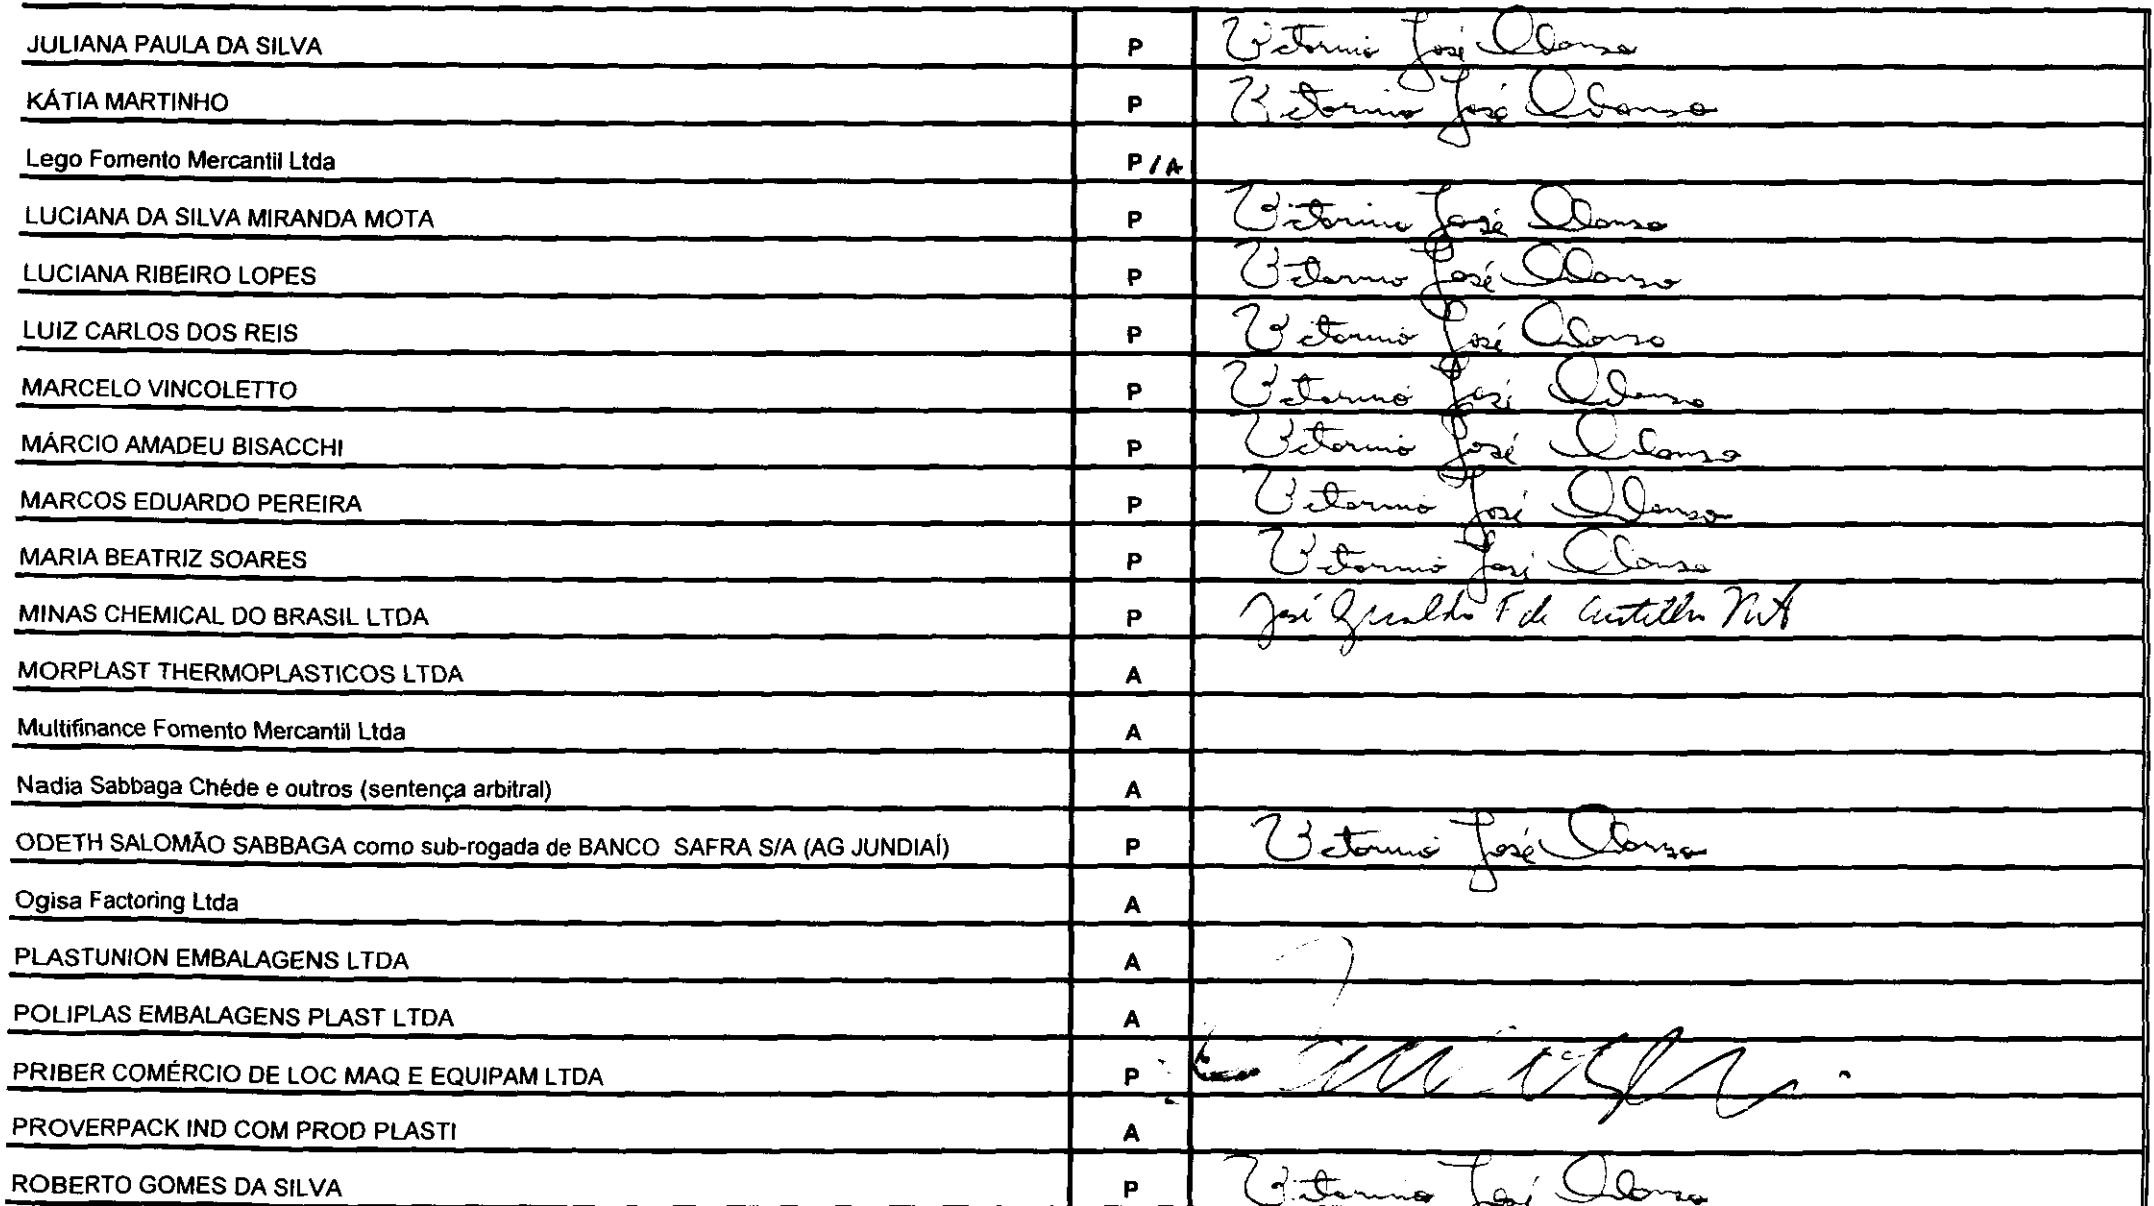 JULIANA PAULA DA SILVA P Vitorino José Alonso
KÁTIA MARTINHO P Vitorino José Alonso
Lego Fomento Mercantil Ltda P/A
LUCIANA DA SILVA MIRANDA MOTA P Vitorino José Alonso
LUCIANA RIBEIRO LOPES P Vitorino José Alonso
LUIZ CARLOS DOS REIS P Vitorino José Alonso
MARCELO VINCOLETTO P Vitorino José Alonso
MÁRCIO AMADEU BISACCHI P Vitorino José Alonso
MARCOS EDUARDO PEREIRA P Vitorino José Alonso
MARIA BEATRIZ SOARES P Vitorino José Alonso
MINAS CHEMICAL DO BRASIL LTDA P José Geraldo F de
MORPLAST THERMOPLASTICOS LTDA A
Multifinance Fomento Mercantil Ltda A
Nadia Sabbaga Chéde e outros (sentença arbitral) A
ODETH SALOMÃO SABBAGA como sub-rogada de BANCO SAFRA S/A (AG JUNDIAÍ) P Vitorino José Alonso
Ogisa Factoring Ltda A
PLASTUNION EMBALAGENS LTDA A
POLIPLAS EMBALAGENS PLAST LTDA A
PRIBER COMÉRCIO DE LOC MAQ E EQUIPAM LTDA P
PROVERPACK IND COM PROD PLASTI A
ROBERTO GOMES DA SILVA P Vitorino José Alonso